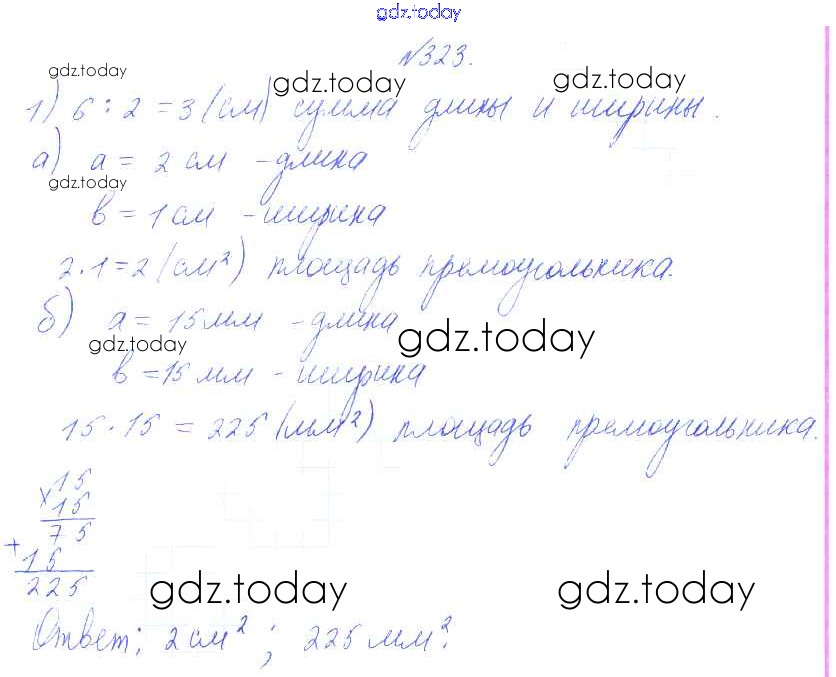 gdz.today
№323.
gdz.today gdz.today gdz.today
1) 6 : 2 = 3 (см) сумма длины и ширины.
а) а = 2 см - длина
gdz.today
в = 1 см - ширина
2 · 1 = 2 (см²) площадь прямоугольника.
б) а = 15 мм - длина
gdz.today gdz.today
в = 15 мм - ширина
15 · 15 = 225 (мм²) площадь прямоугольника.
× 15
15
75
+ 15
225
gdz.today gdz.today
Ответ: 2 см² ; 225 мм².